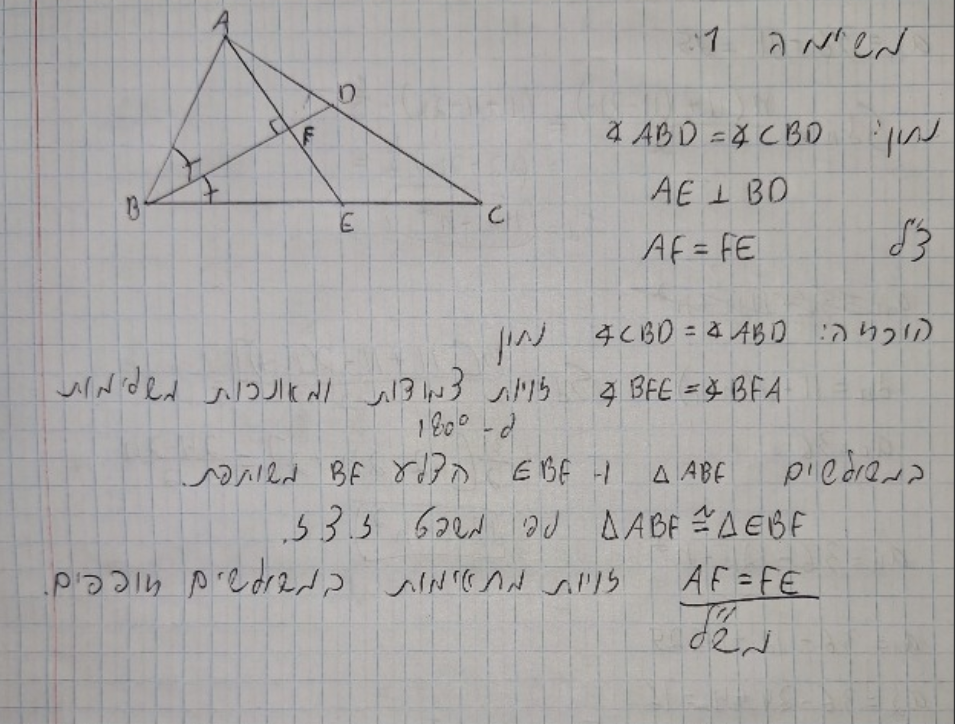 משימה 1:
A
D
F
B
E
C
נתון: ∢ABD = ∢CBD
AE ⊥ BD
צ"ל AF = FE
הוכחה: ∢CBD = ∢ABD נתון
∢BFE = ∢BFA זוויות צמודות ומאונכות משלימות
ל- 180°
במשולשים △ABF ו- EBF הצלע BF משותפת.
△ABF ≅ △EBF לפי משפט ז.צ.ז.
AF = FE זוויות מתאימות במשולשים חופפים.
מש"ל